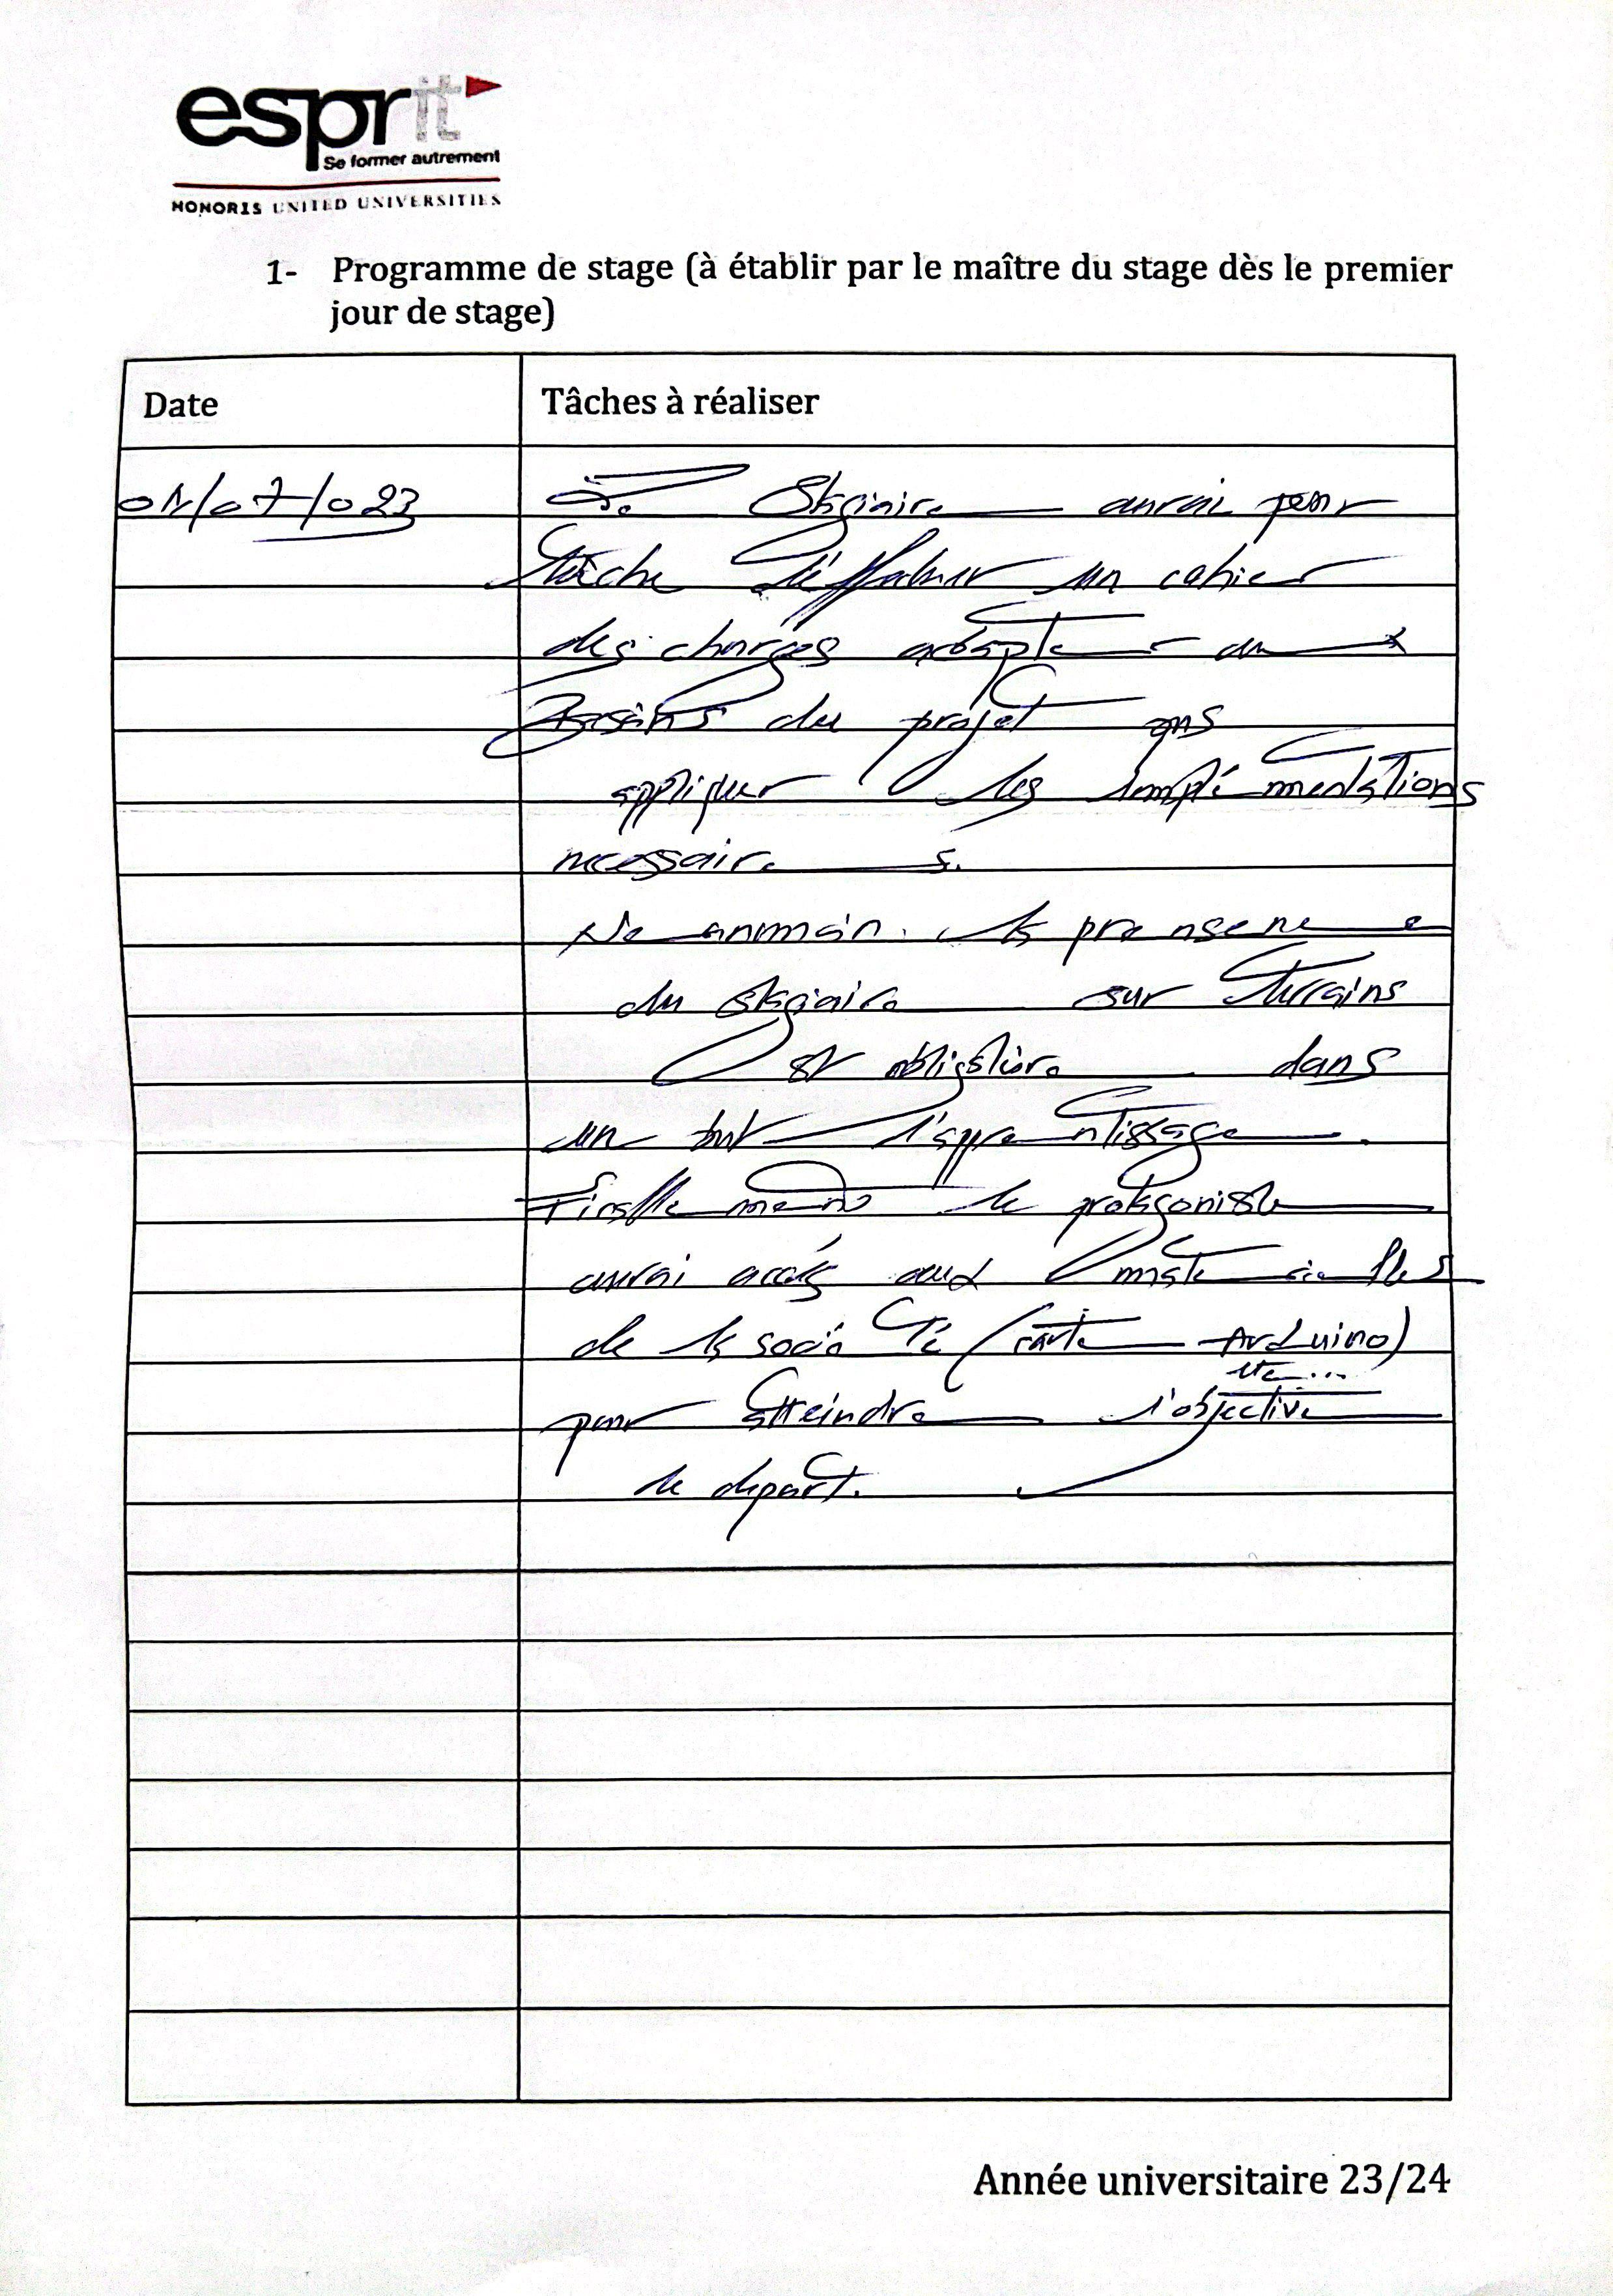 esprit
Se former autrement
HONORIS UNITED UNIVERSITIES
1- Programme de stage (à établir par le maître du stage dès le premier
jour de stage)
Date
Tâches à réaliser
01/07/023
Le Stagiaire aurai pour
tâche un cahier
des charges adapter aux
Besoins du projet
appliquer les implémentations
necessaires.
la
du stagiaire sur terrains
est obligatoire dans
un but d'apprentissage.
le protagoniste
aurai accés aux
de la société (carte Arduino)
etc...
pour atteindre l'objective
de départ.
Année universitaire 23/24